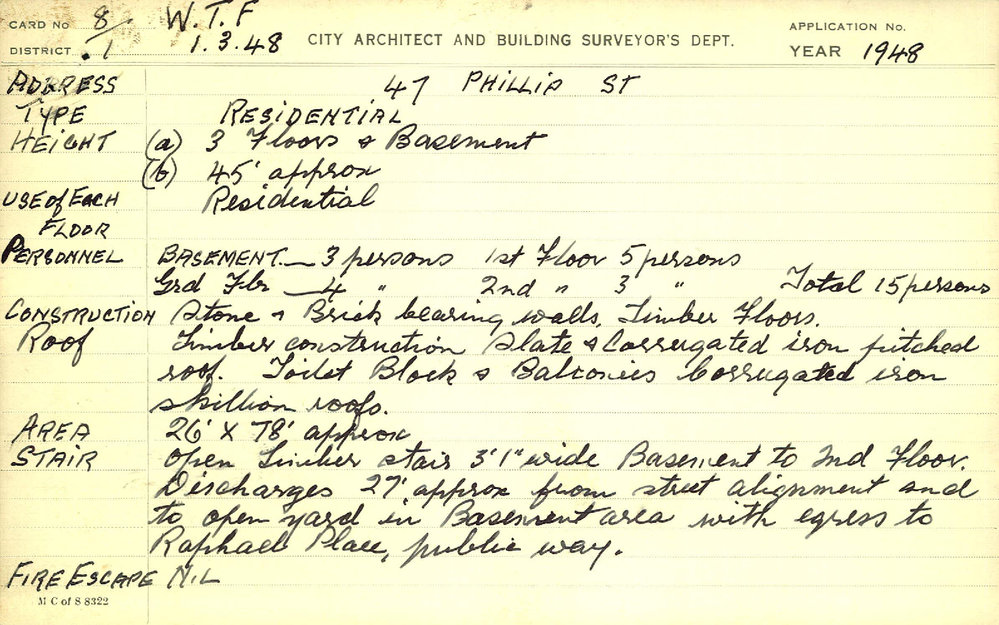 CARD No 8 W.T.F APPLICATION No.
DISTRICT .1 1.3.48 CITY ARCHITECT AND BUILDING SURVEYOR'S DEPT. YEAR 1948
ADDRESS 47 PHILLIP ST
TYPE RESIDENTIAL
HEIGHT (a) 3 Floors & Basement
(b) 45' approx
USE of EACH Residential
FLOOR
PERSONNEL BASEMENT — 3 persons 1st Floor 5 persons
Grd Flr — 4 " 2nd " 3 " Total 15 persons
CONSTRUCTION Stone & Brick bearing walls. Timber Floors.
Roof Timber construction Slate & Corrugated iron pitched
roof. Toilet Block & Balconies Corrugated iron
skillion roofs.
AREA 26' X 78' approx
STAIR Open Timber stair 3'1" wide Basement to 2nd Floor.
Discharges 27' approx from street alignment and
to open yard in Basement area with egress to
Raphael Place, public way.
FIRE ESCAPE NIL
M C of S 8322